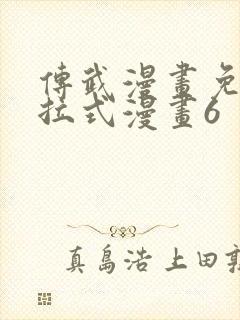 傳武漫畫免
拉式漫畫6
真島浩 上田敦